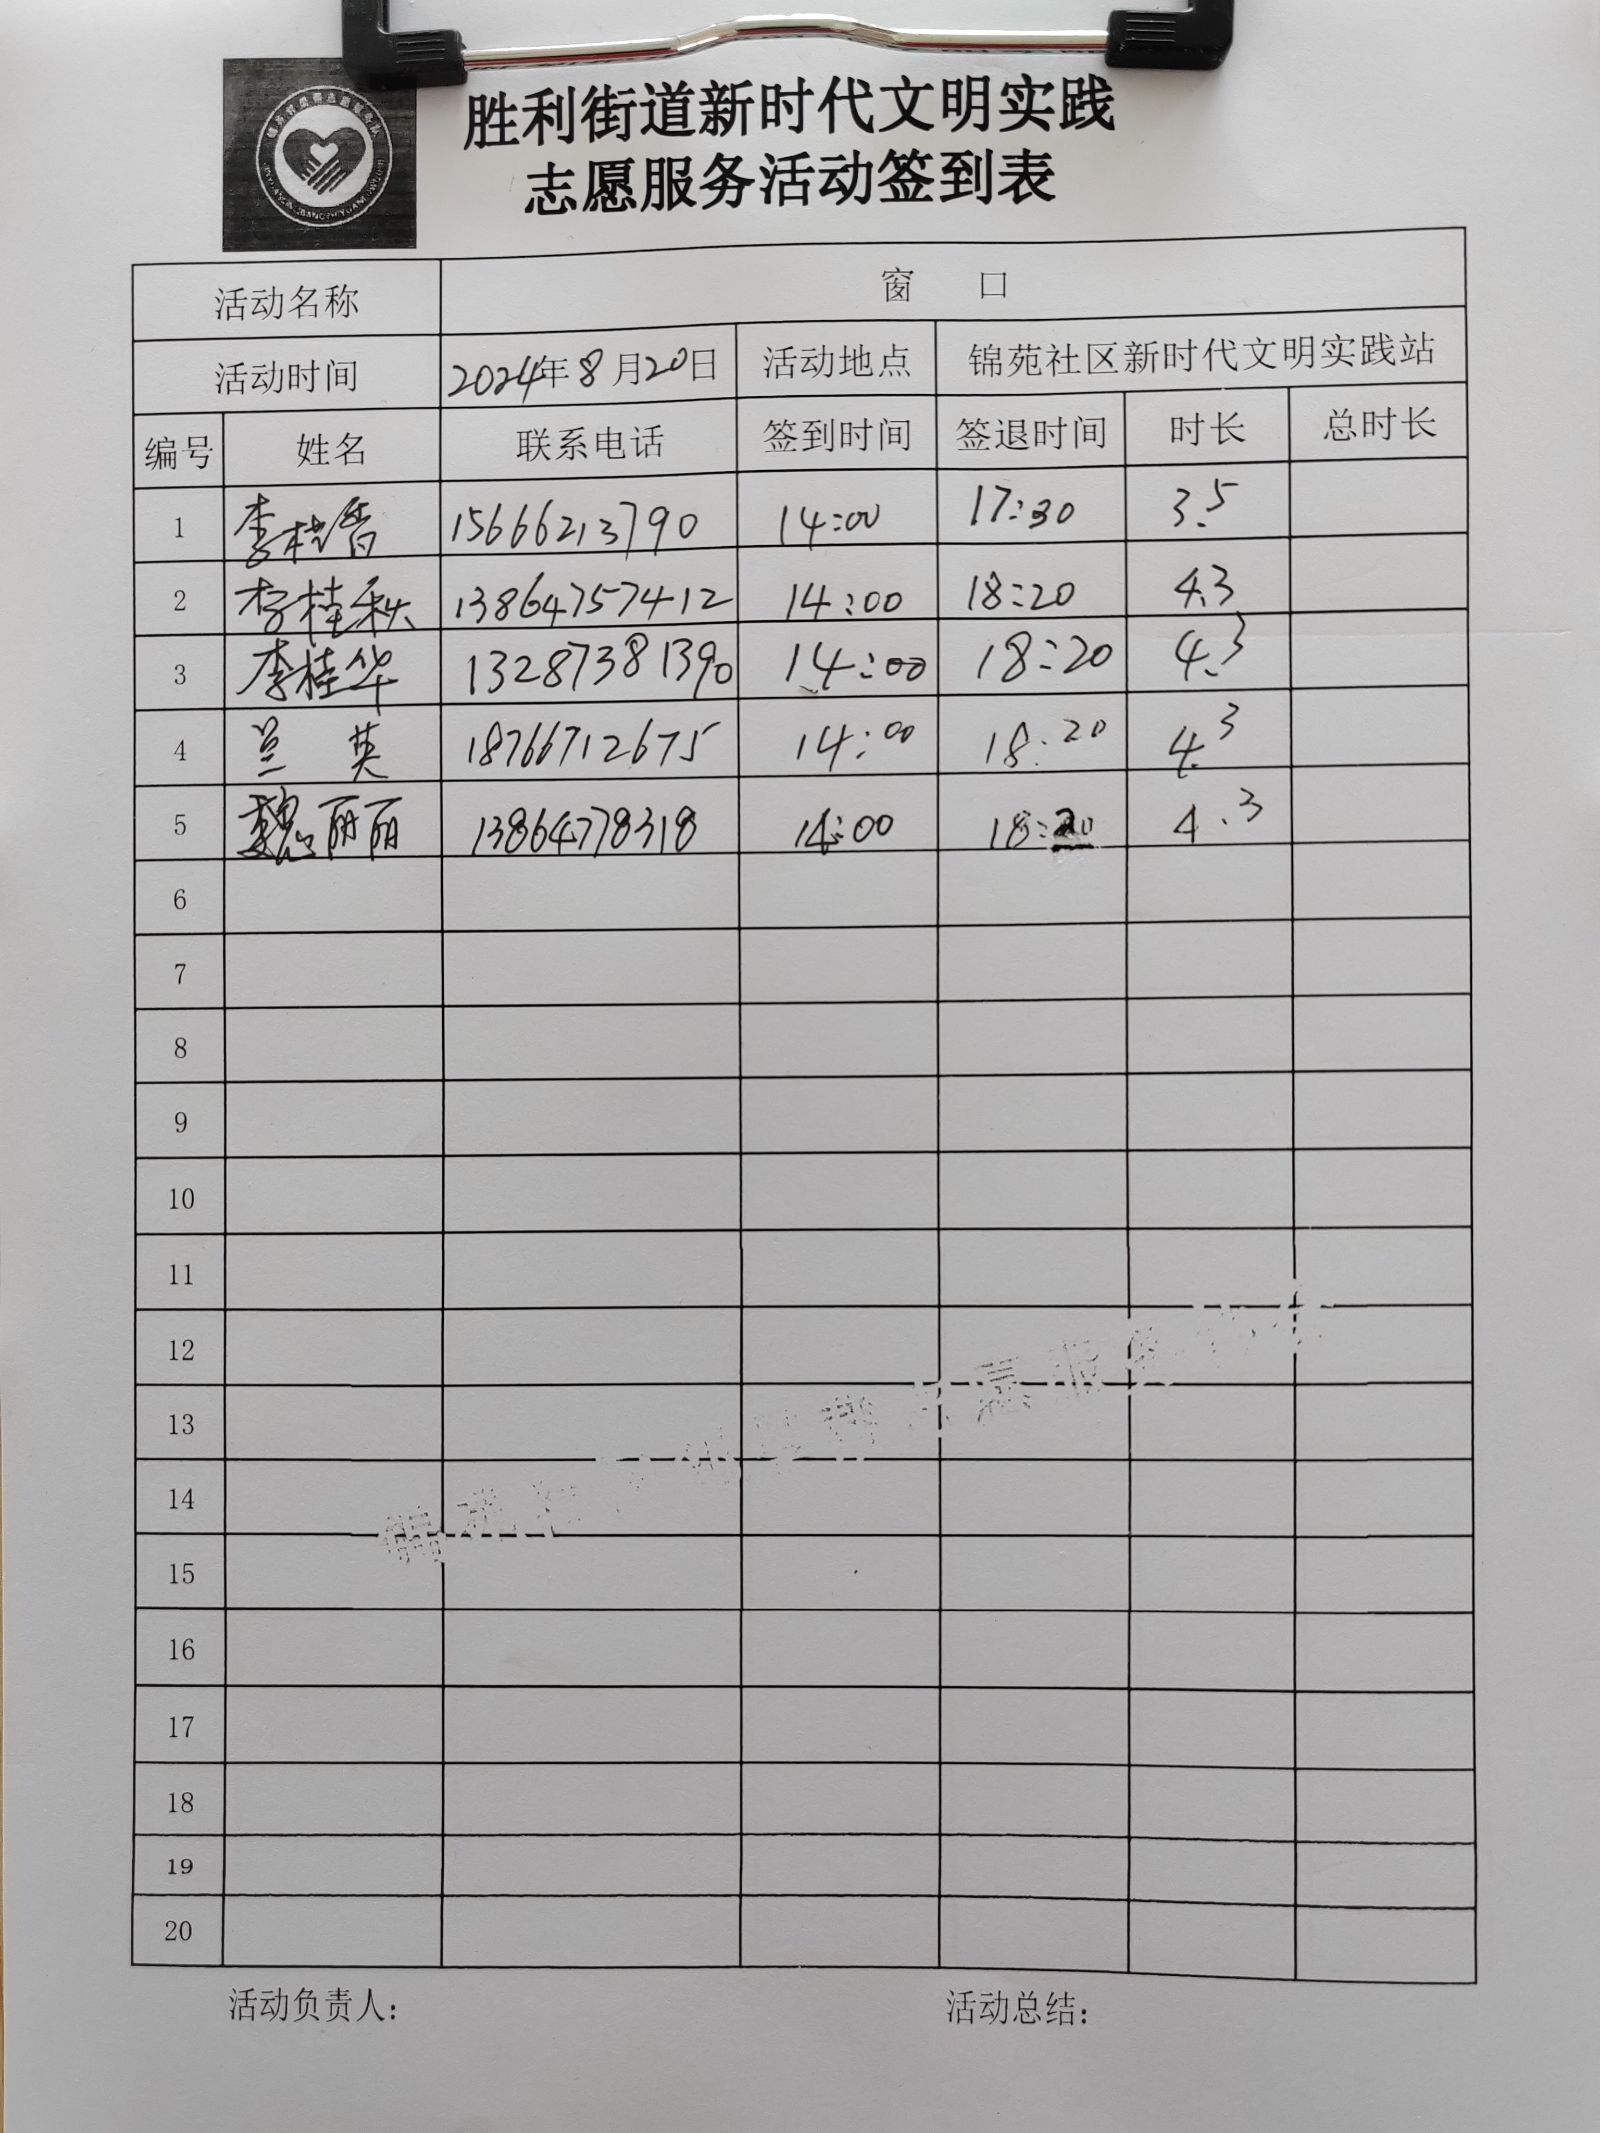 胜利街道新时代文明实践
志愿服务活动签到表
活动名称 窗 口
活动时间 2024年8月20日 活动地点 锦苑社区新时代文明实践站
编号 姓名 联系电话 签到时间 签退时间 时长 总时长
1 李桂香 15666213790 14:00 17:30 3.5
2 李桂秋 13864757412 14:00 18:20 4.3
3 李桂华 13287381390 14:00 18:20 4.3
4 兰英 18766712675 14:00 18:20 4.3
5 魏丽丽 13864778318 14:00 18:20 4.3
6
7
8
9
10
11
12
13
14
15
16
17
18
19
20
活动负责人: 活动总结: